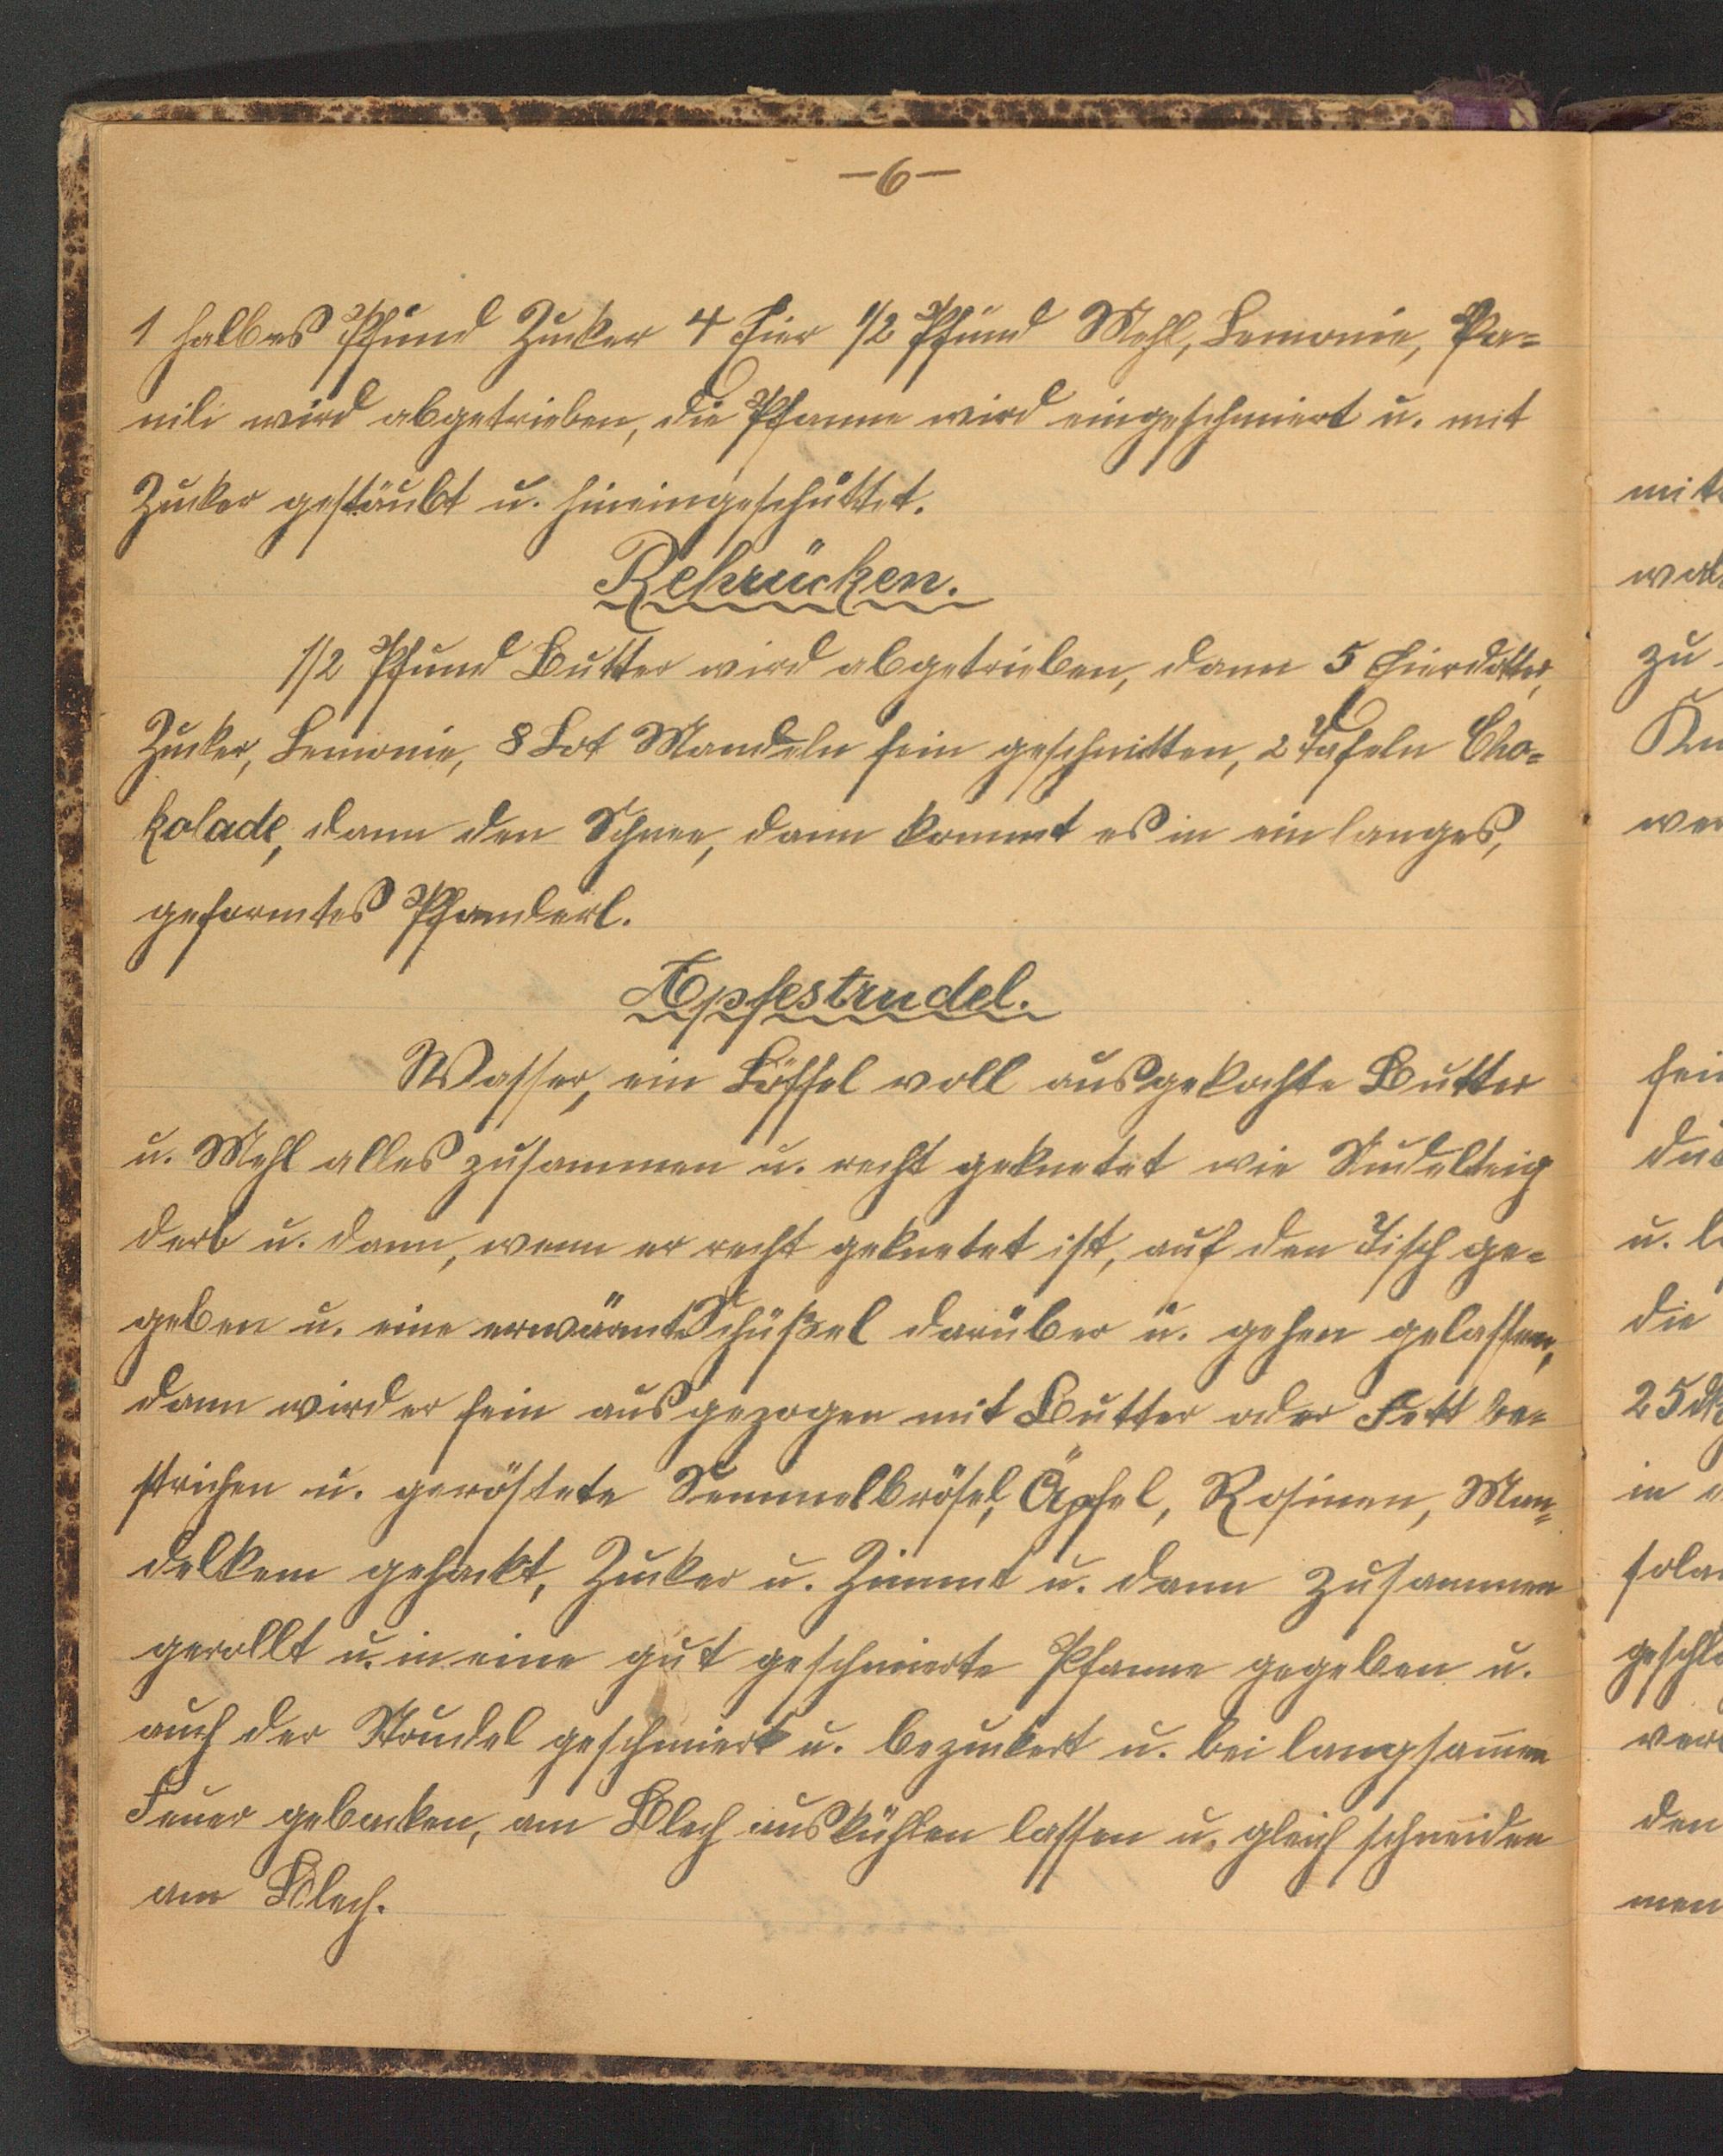 -6-
1 halbes Pfund Zucker 4 Eier 1/2 Pfund Mehl, Lemonie, Va-
nili wird abgetrieben, die Pfanne wird eingeschmiert u. mit
Zucker gestäubt u. hineingeschüttet.
Rehrücken.
1/2 Pfund Butter wird abgetrieben, dann 5 Eierdotter,
Zucker, Lemonie, 8 Lot Mandeln fein geschnitten, 2 Tafeln Cho-
kolade, dann den Schnee, dann kommt es in ein langes,
geformtes Pfanderl.
Apfestrudel.
Wasser, ein Löffel voll ausgekochte Butter
u. Mehl alles zusammen u. recht geknetet wie Nudelteig
derb u. dann, wenn er recht geknetet ist, auf den Tisch ge-
geben u. eine erwärmte Schüßel darüber u. gehen gelassen,
dann wird er fein ausgezogen mit Butter oder Fett be-
strichen u. geröstete Semmelbrösel, Äpfel, Rosinen, Man-
delkern gehackt, Zucker u. Zimmt u. dann zusammen
gerollt u. in eine gut geschmierte Pfanne gegeben u.
auch der Strudel geschmiert u. bezuckert u. bei langsamen
Feuer gebacken, am Blech auskühlen lassen u. gleich schneiden
am Blech.
mit
zu
wer
fein
u.
die
25
in
den
men